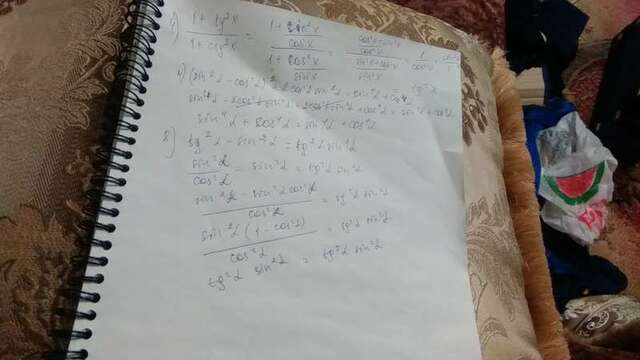 1) (1 + tg²x)/(1 + ctg²x) = (1 + sin²x/cos²x)/(1 + cos²x/sin²x) = ((cos²x + sin²x)/cos²x)/((sin²x + cos²x)/sin²x) = 1/cos²x
tg²x
(sin²α - cos²α)² + 2cos²α sin²α = sin⁴α +
sin⁴α - 2cos²α sin²α + 2cos²α sin²α + cos⁴α = sin⁴α + cos⁴α
sin⁴α + cos⁴α = sin⁴α + cos⁴α
8) tg²α - sin²α = tg²α sin²α
sin²α/cos²α - sin²α = tg²α sin²α
(sin²α - sin²α cos²α)/cos²α = tg²α sin²α
sin²α (1 - cos²α)/cos²α = tg²α sin²α
tg²α sin²α = tg²α sin²α